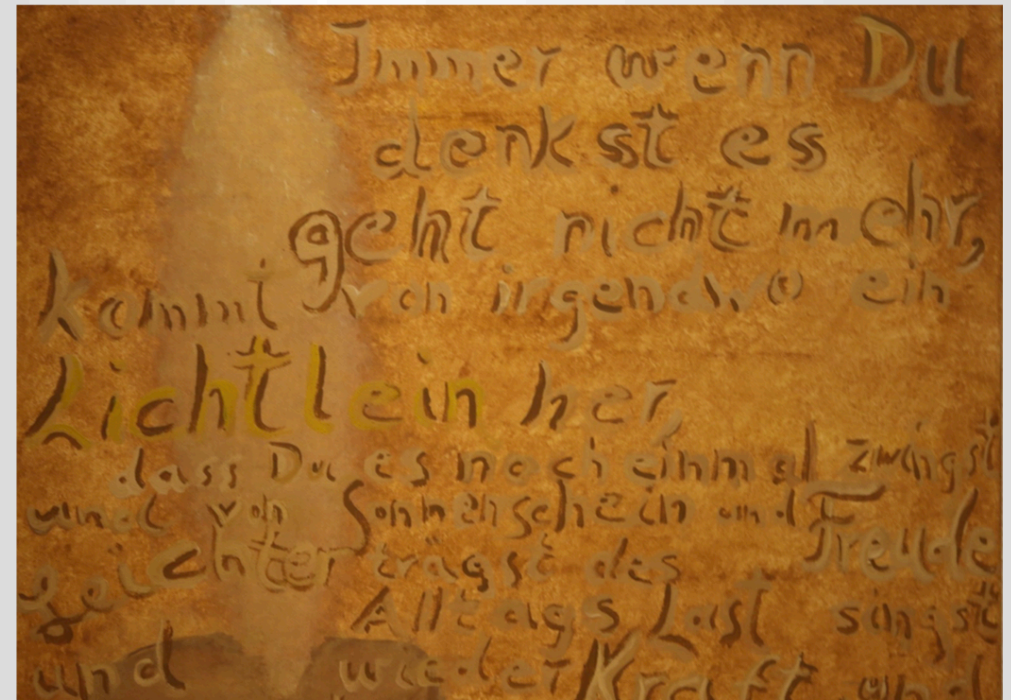 Immer wenn Du
denkst es
geht nicht mehr,
kommt von irgendwo ein
Lichtlein her,
dass Du es noch einmal zwingst
und von Sonnenschein und Freude
leichter trägst des
Alltags Last singst
und wieder Kraft und